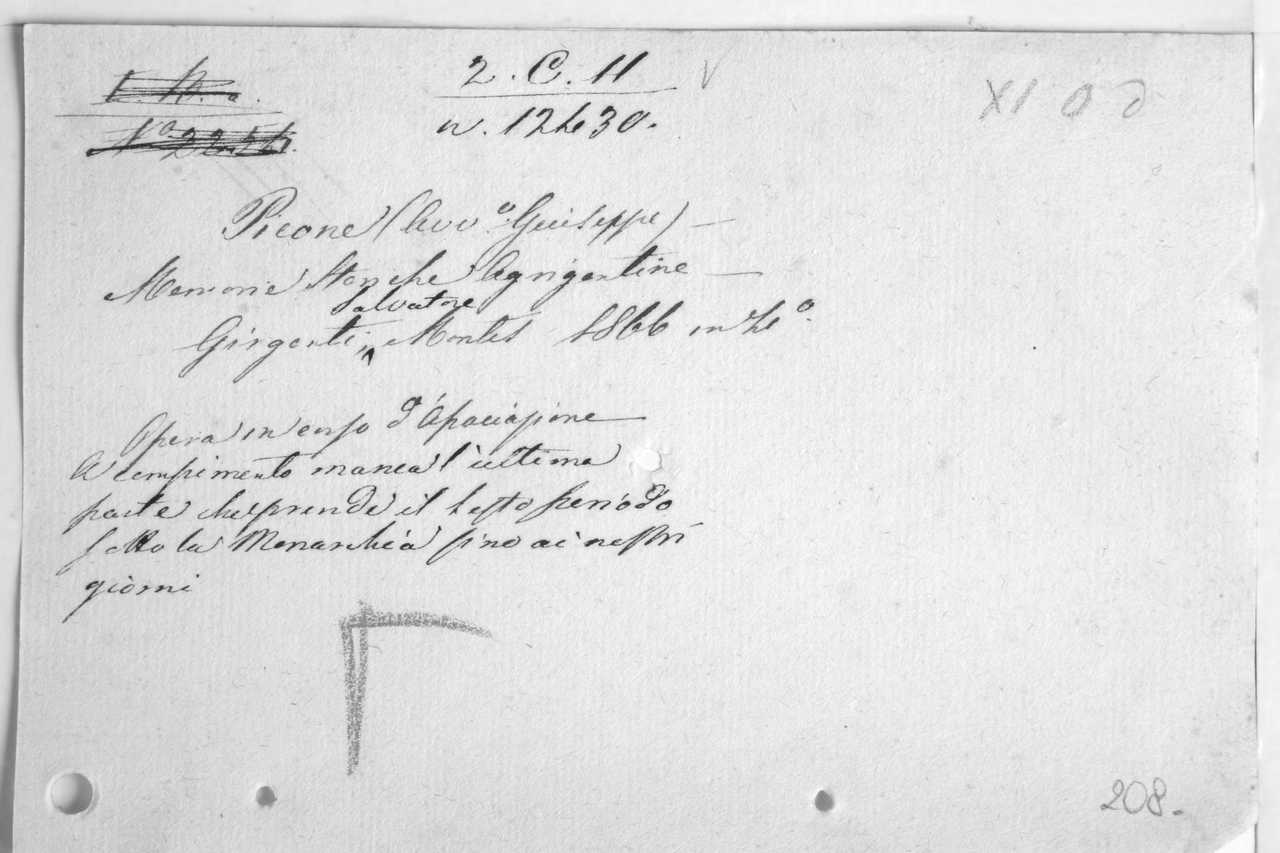 2. C. 11
n. 12430.
Picone (Avv.º Giuseppe) —
Memorie Storiche Agrigentine —
Salvatore
Girgenti, Montes 1866 in 4º.
Opera in corso d'Associazione
A compimento manca l'ultima
parte che prende il Sesto periodo
sotto la Monarchia sino ai nostri
giorni
208.